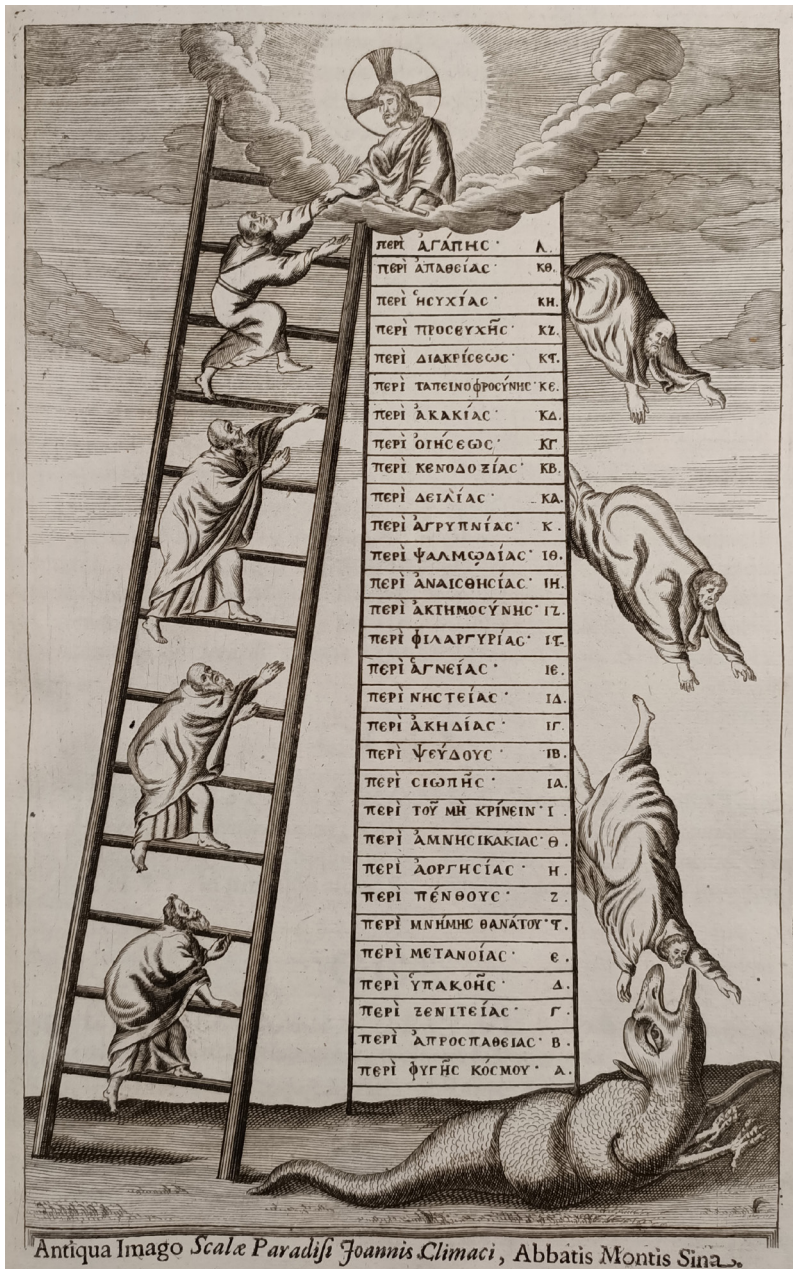 περὶ ἀγάπης · Λ.
περὶ ἀπαθείας · ΚΘ.
περὶ ἡσυχίας · ΚΗ.
περὶ προσευχῆς · ΚΖ.
περὶ διακρίσεως · ΚϚ.
περὶ ταπεινοφροσύνης · ΚΕ.
περὶ ἀκακίας · ΚΔ.
περὶ ὀιήσεως · ΚΓ
περὶ κενοδοξίας · ΚΒ.
περὶ δειλίας · ΚΑ.
περὶ ἀγρυπνίας · Κ.
περὶ ψαλμῳδίας · ΙΘ.
περὶ ἀναισθησίας · ΙΗ.
περὶ ἀκτημοσύνης · ΙΖ.
περὶ φιλαργυρίας · ΙϚ.
περὶ ἁγνείας · ΙΕ.
περὶ νηστείας · ΙΔ.
περὶ ἀκηδίας · ΙΓ.
περὶ ψεύδους · ΙΒ.
περὶ σιωπῆς · ΙΑ.
περὶ τοῦ μὴ κρίνειν · Ι
περὶ ἀμνησικακιας · Θ.
περὶ ἀοργησίας · Η.
περὶ πένθους · Ζ.
περὶ μνήμης θανάτου · Ϛ.
περὶ μετανοίας · Ε.
περὶ ὑπακοῆς · Δ.
περὶ ξενιτείας · Γ.
περὶ ἀπροσπαθειας · Β.
περὶ φυγῆς κόσμου · Α.
Antiqua Imago Scalæ Paradisi Joannis Climaci, Abbatis Montis Sina.